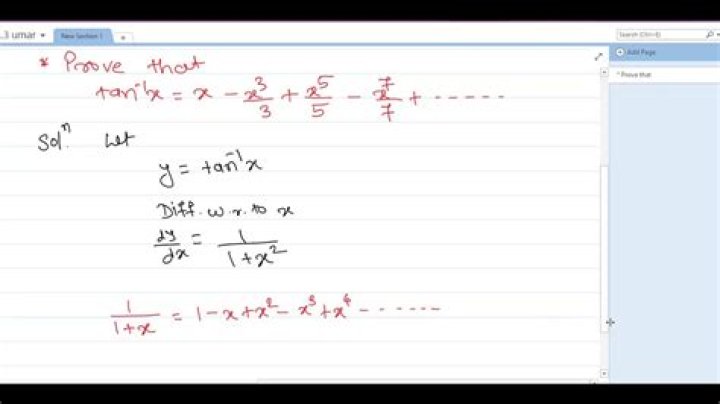 .3 umar
New Section 1
Search (Ctrl+E)
Add Page
* Prove that
* Prove that
tan⁻¹x = x - x³/3 + x⁵/5 - x⁷/7 + -----
Solⁿ. Let
y = tan⁻¹x
Diff. w.r. to x
dy/dx = 1/(1+x²)
1/(1+x) = 1 - x + x² - x³ + x⁴ - ------